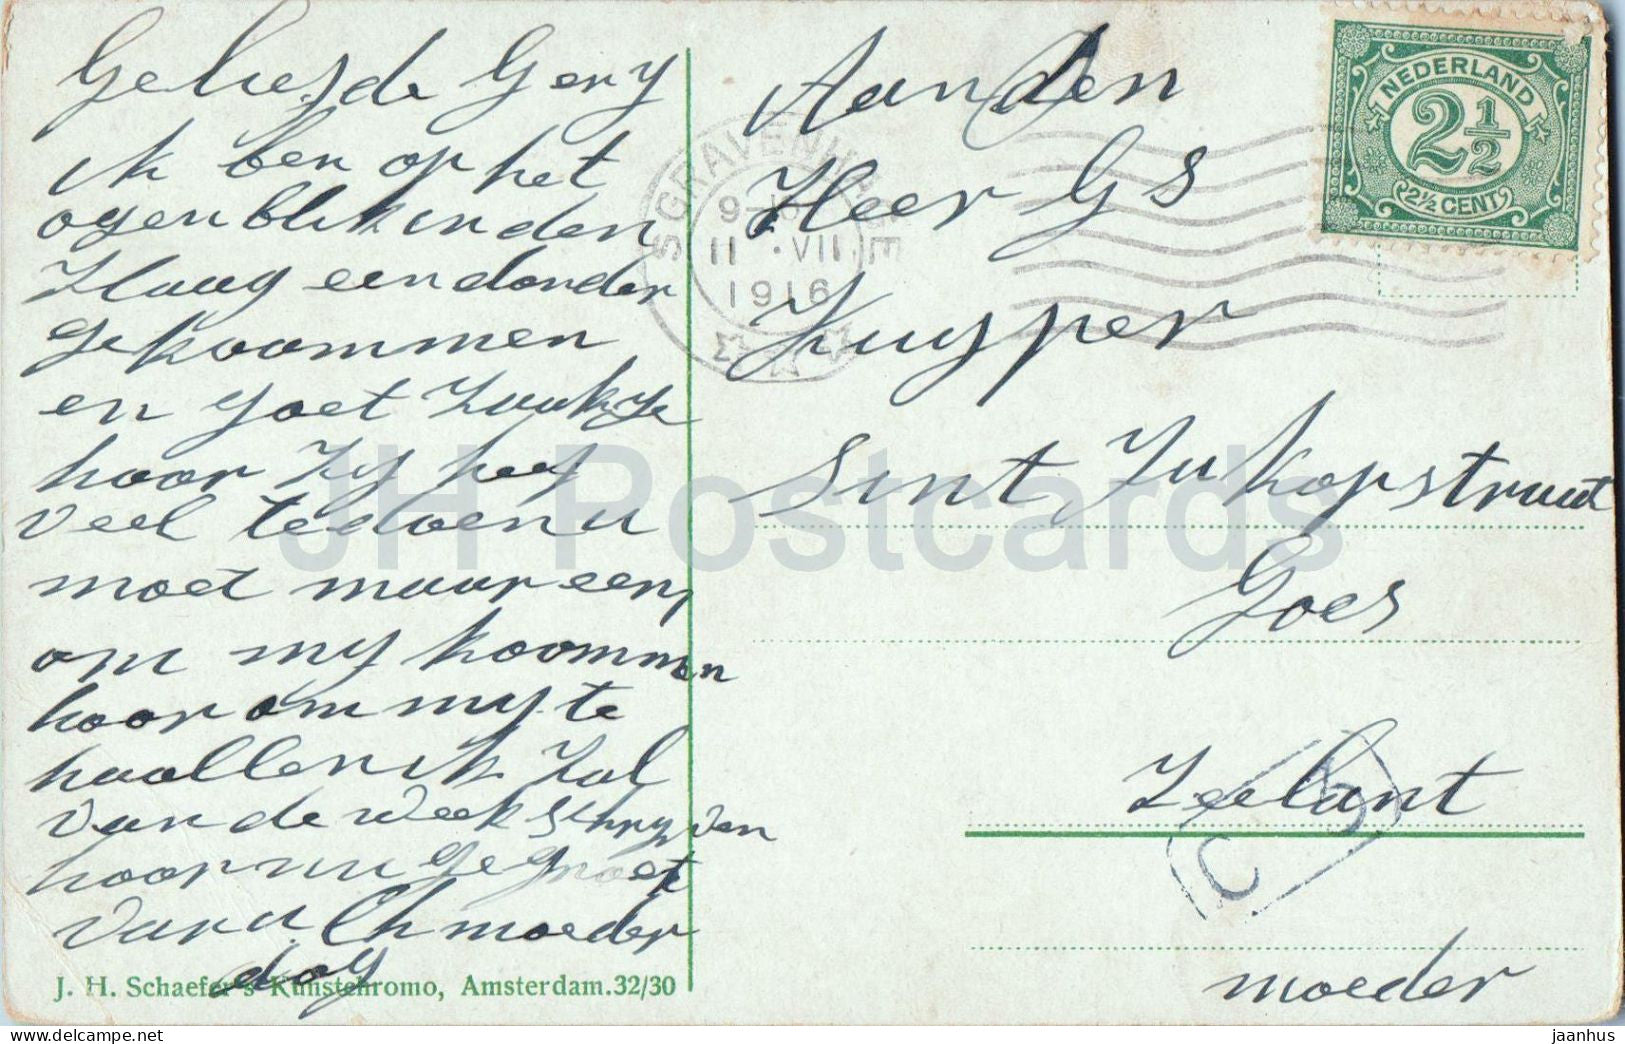 Geliefde Gery
ik ben op het
ogenblik in den
Haag een donder
gekoommen
en goet
hoor Zy hef
veel te doen u
moet maar eens
om my koommen
hoor om my te
haallen ik zal
van de week schryven
hoor nu gegroet
van u moeder
dag
Aan den
Heer G S
Kuyper
Sint Jakopstraat
Goes
Zeelant
moeder
NEDERLAND
2 1/2
2½ CENT
S GRAVENHAGE
11 ·VII
1916
J. H. Schaefer's Kunstchromo, Amsterdam.32/30
JH Postcards
jaanhus